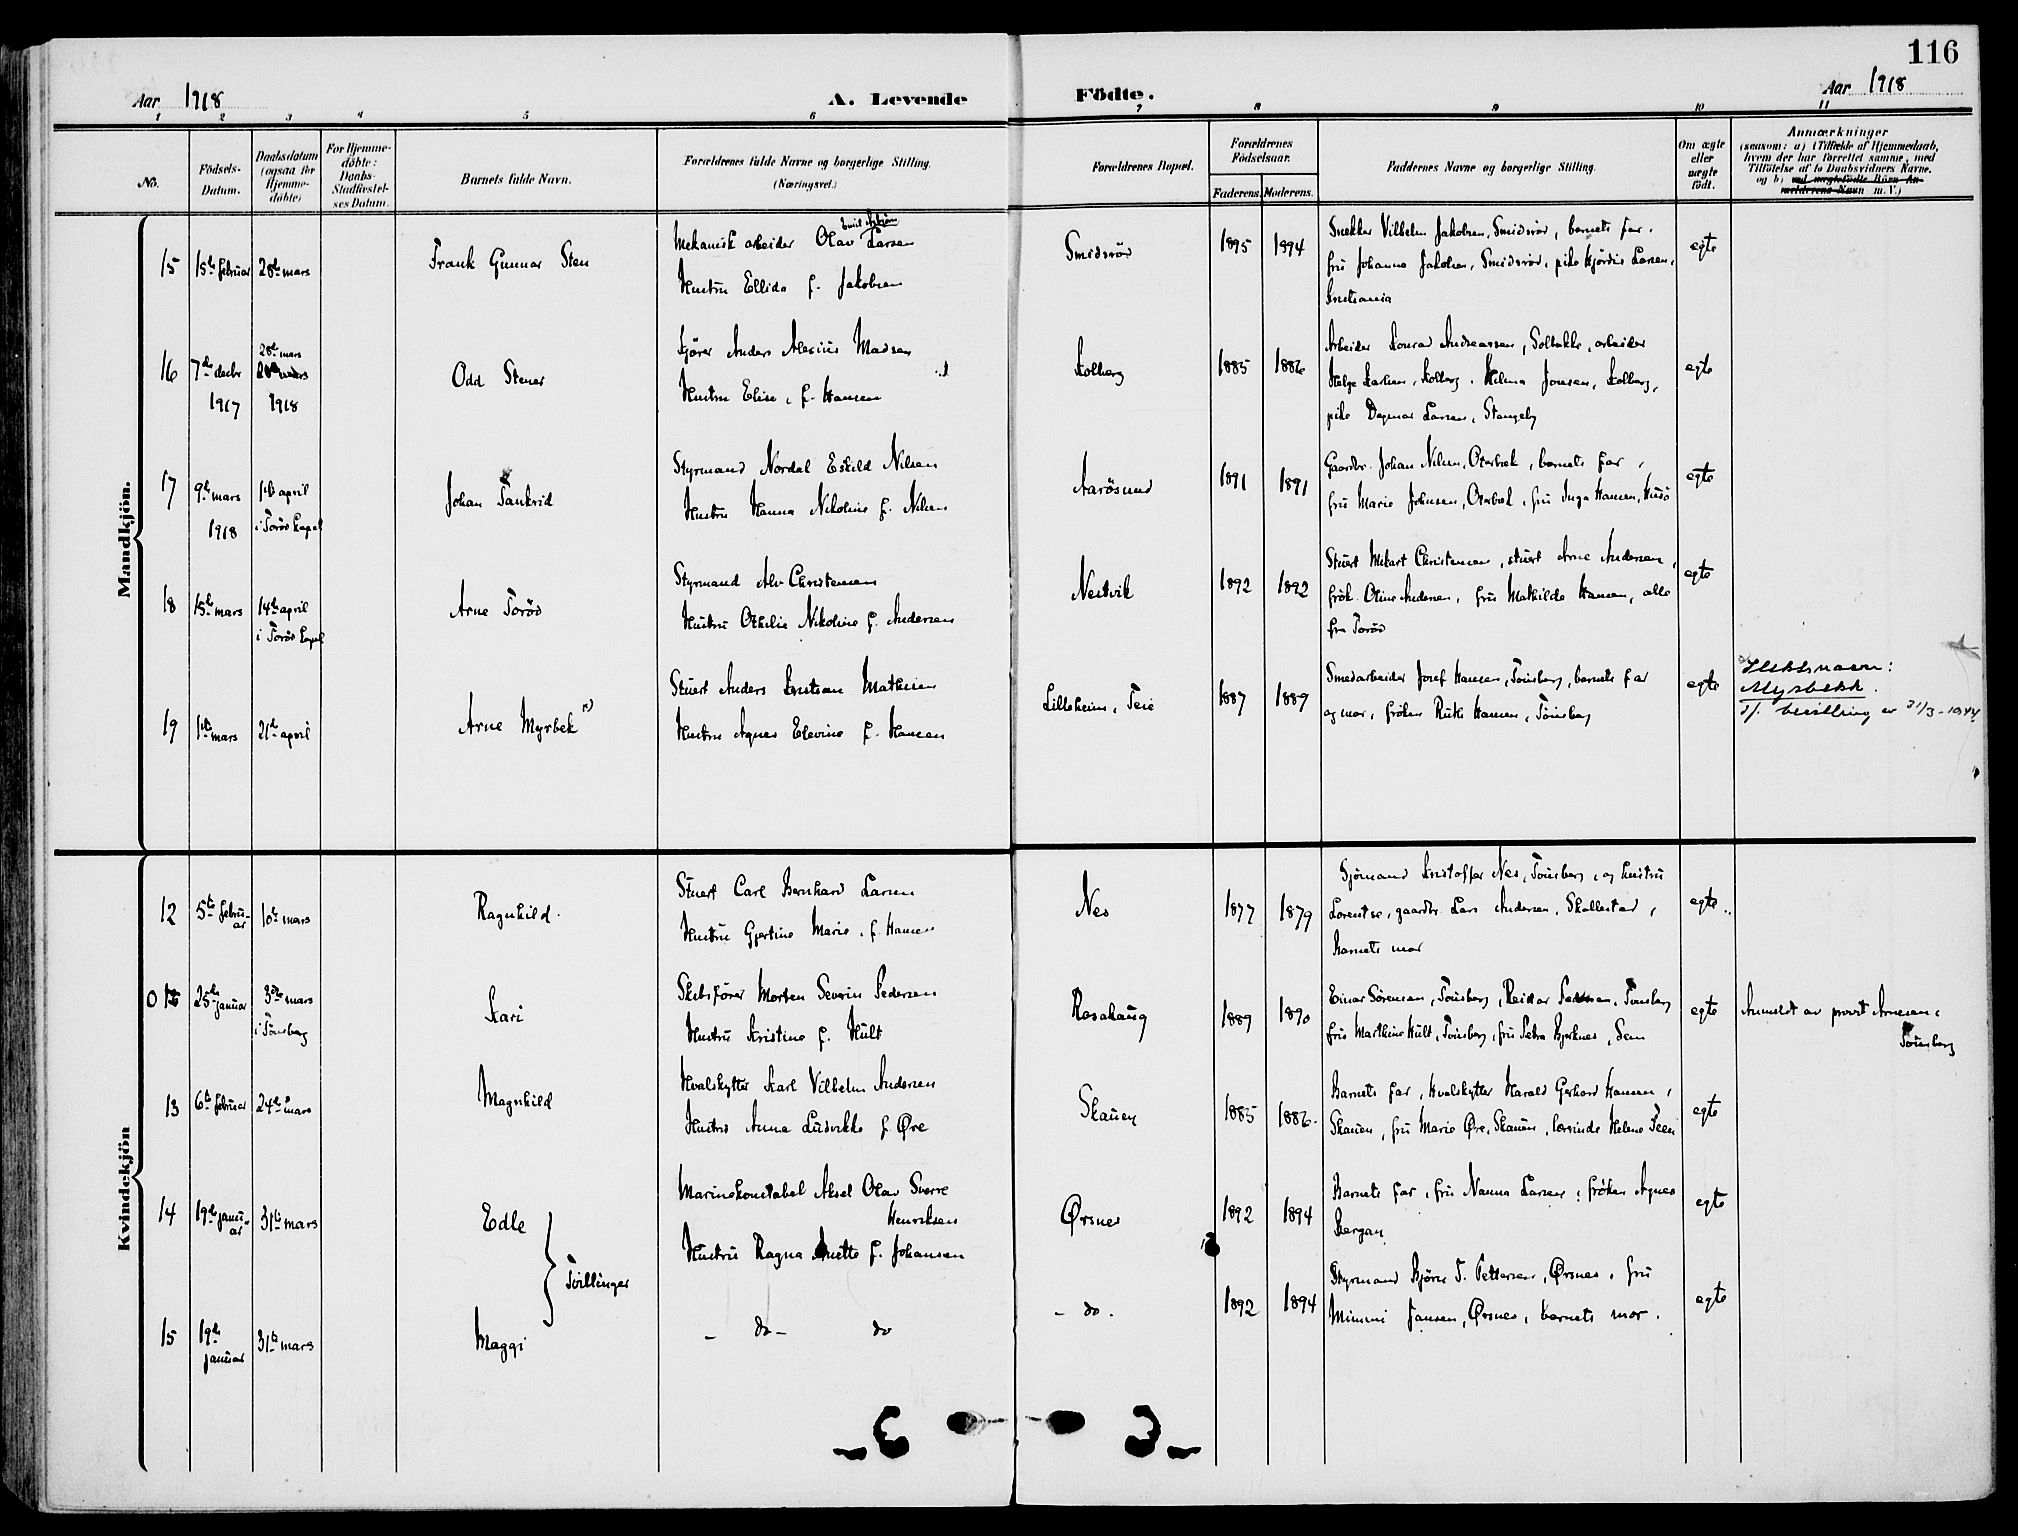 116
Aar 1918
A. Levende Födte.
Aar 1918
1 2 3 4 5 6 7 8 9 10 11
No.
Födsels-Datum.
Daabsdatum (ogsaa for Hjemme-döbte)
For Hjemme-döbte: Daabs-Stadfæstel-ses Datum.
Barnets fulde Navn.
Forældrenes fulde Navne og borgerlige Stilling. (Næringsvei.)
Forældrenes Bopæl.
Forældrenes Födselsaar.
Faderens. Moderens.
Faddernes Navne og borgerlige Stilling.
Om ægte eller uægte födt.
Anmærkninger
(saasom: a) i Tilfælde af Hjemmedaab,
hvem der har forrettet samme, med
Tilföielse af to Daabsvidners Navne.
og b) ved uægtefödte Börn An-
mælderens Navn m. V.)
Mandkjön.
15 15de februar 28de mars
Frank Gunnar Sten
Mekanisk arbeider Olav Larsen
Hustru Ellida f. Jakobsen
Smidsröd
1895 1894
Snekker Vilhelm Jakobsen, Smidsröd, barnets far,
fru Johanna Jakobsen, Smidsröd, pike Hjördis Larsen,
Kristiania
egte
16 7de decbr 1917
28de mars
1918
Odd Stener
Kjörer Anders Alexius Madsen
Hustru Elise, f. Hansen
Kolberg
1885 1886
Arbeider Konrad Andreassen, Solbakke, arbeider
Helge Karlsen, Kolberg, Helma Jonsen, Kolberg,
pike Dagmar Larsen, Stangeby
egte
17 9de mars 1918
april
i Torød Kapel
Johan Tankred
Styrmand Nordal Eskild Nilsen
Hustru Hanna Nikoline f. Nilsen
Aarösund
1891 1891
Gaardbr. Johan Nilsen, Oterbæk, barnets far,
fru Marie Johnsen, Oterbæk, fru Inga Hansen, Husö
egte
18 15de mars 14de april
i Torød Kapel
Arne Torød
Styrmand Alv Christensen
Hustru Othilie Nikoline f. Andersen
Nestvik
1892 1892
Stuert Mikart Christensen, stuert Arne Andersen,
frök. Oline Andersen, fru Mathilde Hansen, alle
fra Torød
egte
19 1ste mars 21de april
Arne Myrbek
Stuert Anders Kristian Mathisen
Hustru Agnes Elevine f. Hansen
Lilleheim, Teie
1887 1889
Smedarbeider Josef Hansen, Tönsberg, barnets far
og mor, fröken Ruth Hansen, Tönsberg
egte
Slektsnavn:
Myrbekk.
bevilling av 31/3-1944
Kvindekjön
12 5te februar 10de mars
Ragnhild.
Stuert Carl Bernhard Larsen
Hustru Gjertine Marie, f. Hansen
Nes
1877 1879
Sjömand Kristoffer Nes, Tönsberg, og hustru
Lorentse, gaardbr. Lars Andersen, Skallestad,
Barnets mor
egte
0 25de januar 3die mars
i Tönsberg
Kari
Skibsförer Morten Severin Pedersen
Hustru Kristine f. Hult
Rosahaug
1889 1890
Einar Sörensen, Tönsberg, Reidar Pedersen, Tönsberg
fru Marthine Hult, Tönsberg, fru Petra Bjerknes, Sem
egte
Anmeldt av provst Arnesen,
Tönsberg
13 6te februar 24de mars
Magnhild
Hvalskytter Karl Vilhelm Andersen
Hustru Anna Ludvikke f. Øre
Skauen
1885 1886
Barnets far, Hvalskytter Harald Gerhard Hansen,
Skauen, fru Marie Øre, Skauen, lærerinde Helene Teen
egte
14 19de januar 31te mars
Edle
Marinekonstabel Aksel Olav Sverre
Henriksen
Hustru Ragna Anette f. Johansen
Ørsnes
1892 1894
Barnets far, fru Nanna Larsen, fröken Agnes
Bergan
egte
Tvillinger
15 19de januar 31te mars
Maggi
- do - do
- do.
1892 1894
Styrmand Björn T. Pettersen, Ørsnes, fru
Mimmi Jansen, Ørsnes, barnets mor.
egte